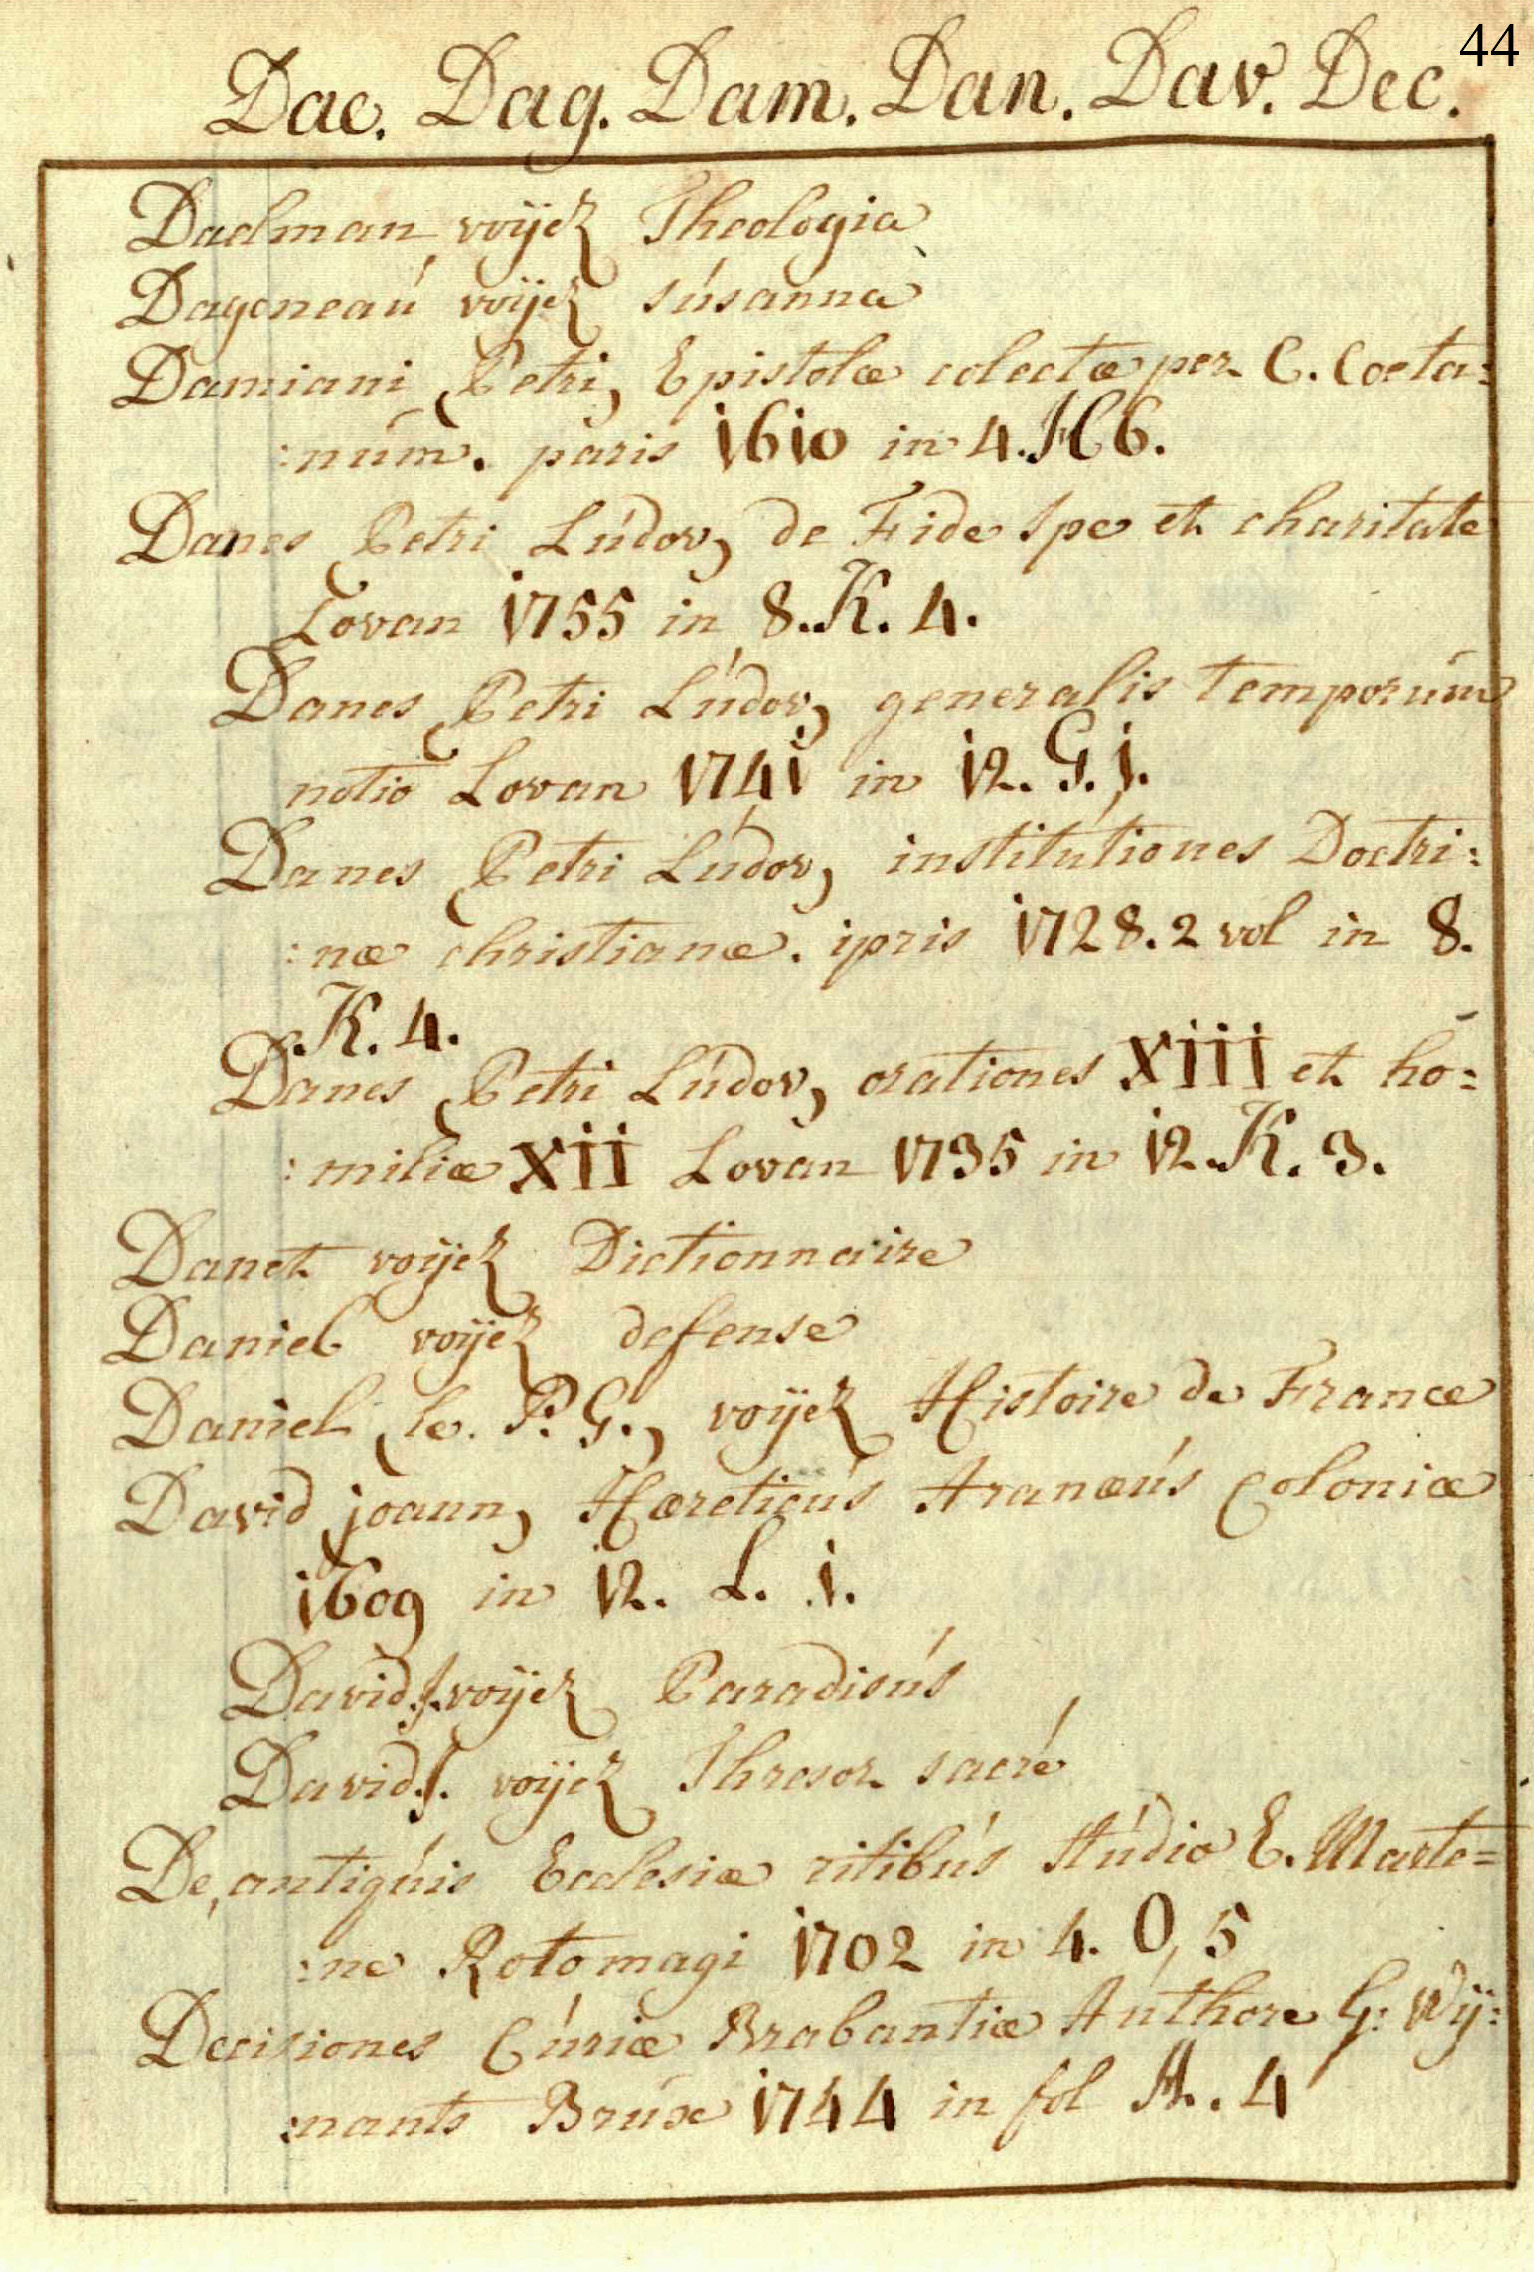 44
Dae. Dag. Dam. Dan. Dav. Dec.
Daelman voÿez Theologia
Dagoneaú voÿez súsanna
Damiani Petri, Epistolæ colectæ per C. Coeta:
:núm. paris 1610 in 4. H 6.
Danes Petri Lúdov, de Fide spe et charitate
Lovan 1755 in 8. K. 4.
Danes Petri Lúdov, generalis temporúm
notio Lovan 1741 in 12. G. j.
Danes Petri Lúdov, institútiones Doctri:
:næ christianæ. ipris 1728. 2 vol in 8.
K. 4.
Danes Petri Lúdov, orationes Xiii et ho:
:miliæ Xii Lovan 1735 in 12. K. 3.
Danet voÿez Dictionnaire
Daniel voÿez defense
Daniel le. P. G., voÿez Histoire de France
David joann, Hæreticús Aranæús Coloniæ
1609 in 12. L. i.
David J. voÿez Paradisús
David J. voÿez Thresor sacré
De antiqúis Ecclesiæ ritibús stúdio E. Marte=
:ne Rotomagi 1702 in 4. O, 5
Decisiones Cúriæ Brabantiæ Aúthore G: Wÿ:
:nants Brúx 1744 in fol A. 4